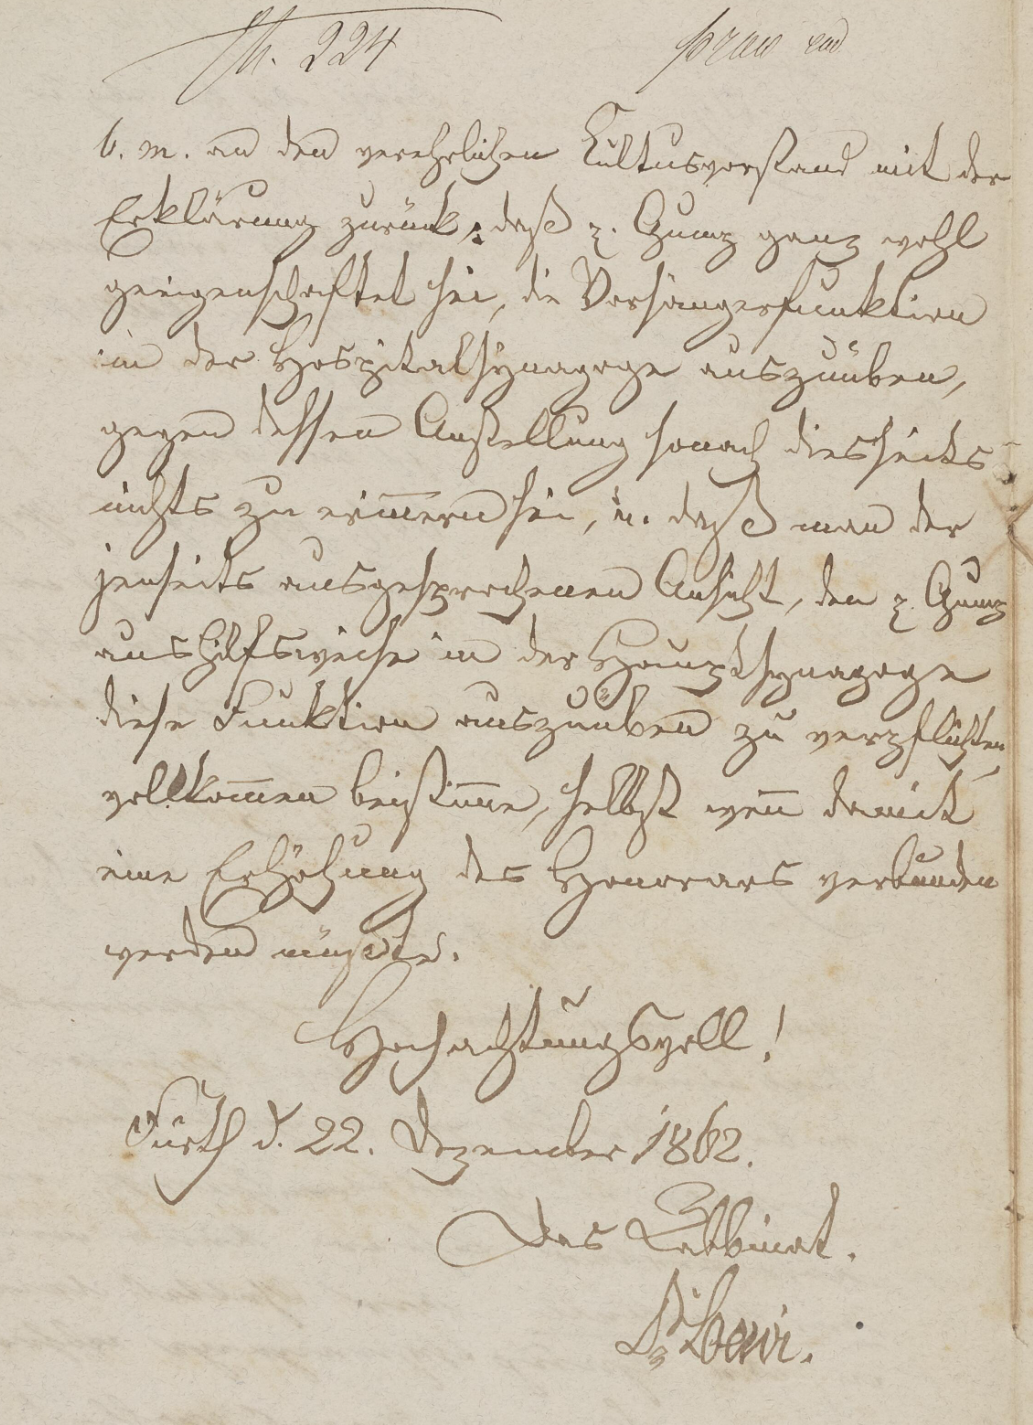 N. 224
b. m. an den verehrlichen Kultusvorstand mit der
Erklärung zurück, daß H. Gump ganz wohl
geeigenschaftet sei, die Vorsängerfunktion
in der Hospitalsynagoge auszuüben,
gegen dessen Anstellung sonach diesseits
nichts zu erinnern sei, u. daß man der
jenseits ausgesprochenen Ansicht, den H. Gump
aushilfsweise in der Hauptsynagoge
diese Funktion auszuüben zu verpflichten,
vollkom̅en beistim̅e, selbst wen̅ damit
eine Erhöhung des Honorars verbunden
werden müßte.
Hochachtungsvoll!
Fürth d. 22. Dezember 1862.
Das Rabbinat.
Dr Löwi.